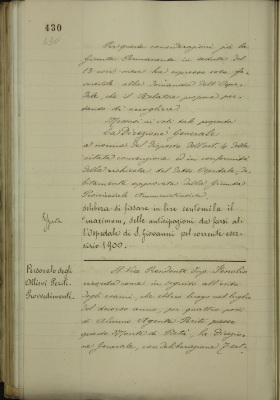 430
430
Per queste considerazioni, già la
Giunta Permanente in seduta del
13 corr. mese ha espresso voto fa-
vorevole alla domanda dell'Ospe-
dale, che il Relatore propone per-
tanto di accogliere
Messosi ai voti tale proposta
La Direzione Generale
a norma del disposto dell'art. 6 della
citata convenzione ed in conformità
della richiesta del detto Ospedale, de-
bitamente approvata dalla Giunta
Provinciale Amministrativa
delibera di fissare in lire centomila il
maximum, delle anticipazioni da farsi al-
l'Ospedale di S. Giovanni pel corrente eser-
cizio 1900.
Personale degli
Allievi Periti.
Provvedimenti.
Il Vice Presidente Sig.
ricorda come in seguito all'esito
degli esami, che ebbero luogo nel luglio
del decorso anno, per quattro posti
di Alunno Agente Perito presso
questo Monte di Pietà, la Direzio-
ne Generale, con deliberazione 7 set-